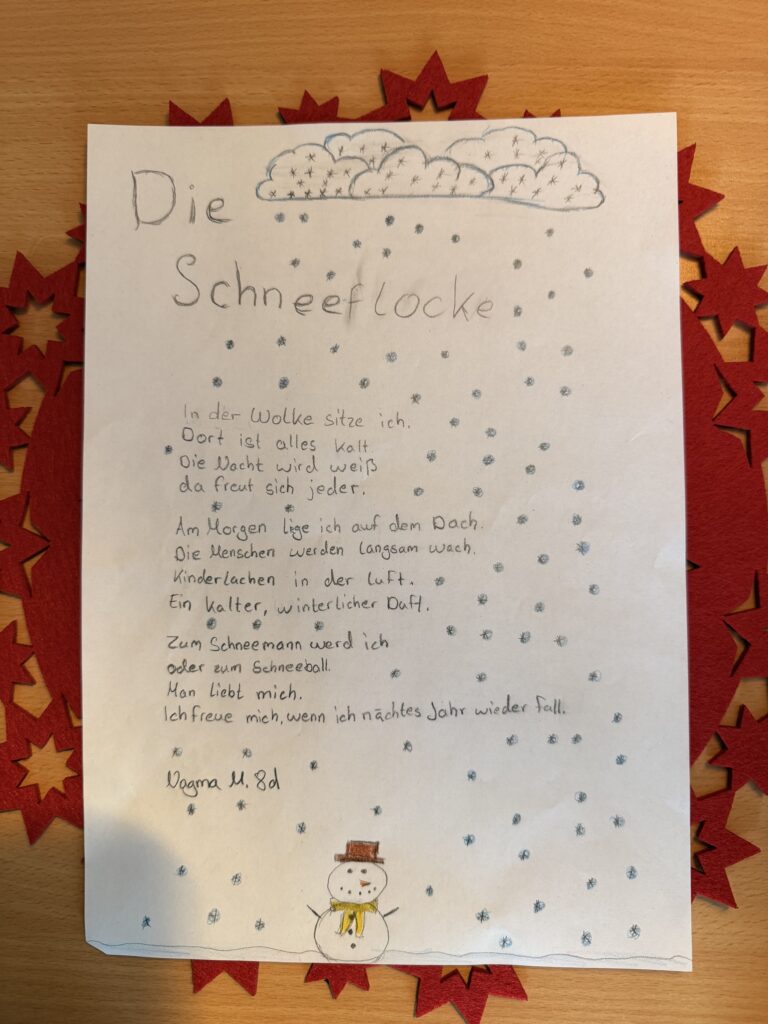 Die
Schneeflocke
In der Wolke sitze ich.
Dort ist alles kalt.
Die Nacht wird weiß
da freut sich jeder.
Am Morgen lige ich auf dem Dach.
Die Menschen werden langsam wach.
Kinderlachen in der Luft.
Ein kalter, winterlicher Duft.
Zum Schneemann werd ich
oder zum Schneeball.
Man liebt mich.
Ich freue mich, wenn ich nächtes Jahr wieder fall.
Nagma M. 8d